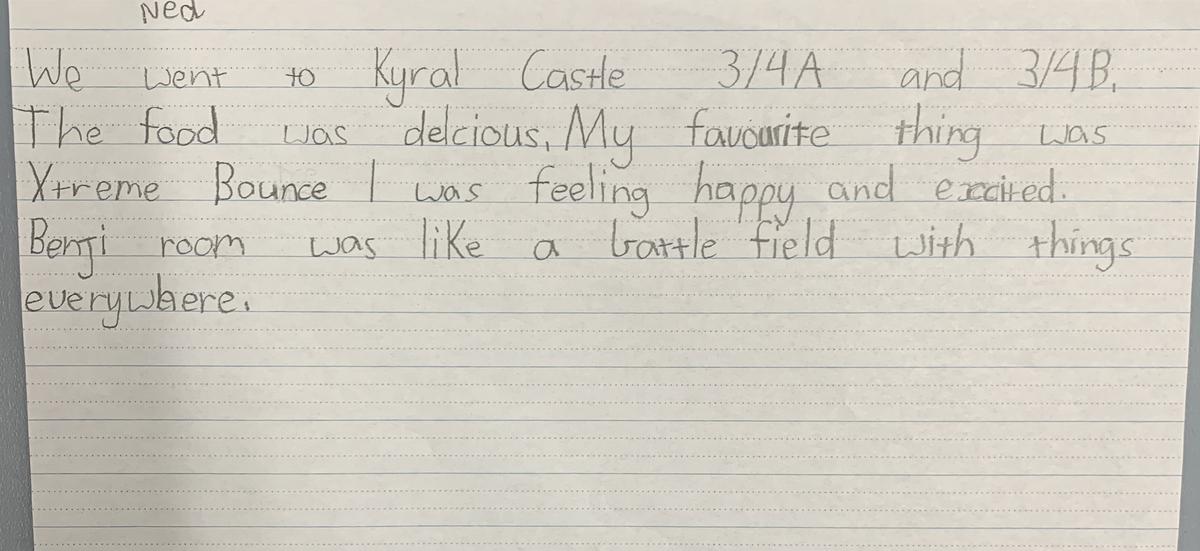 Ned
We went to Kyral Castle 3/4A and 3/4B.
The food was delcious. My favourite thing was
Xtreme Bounce I was feeling happy and excited.
Benji room was like a battle field with things
everywhere.